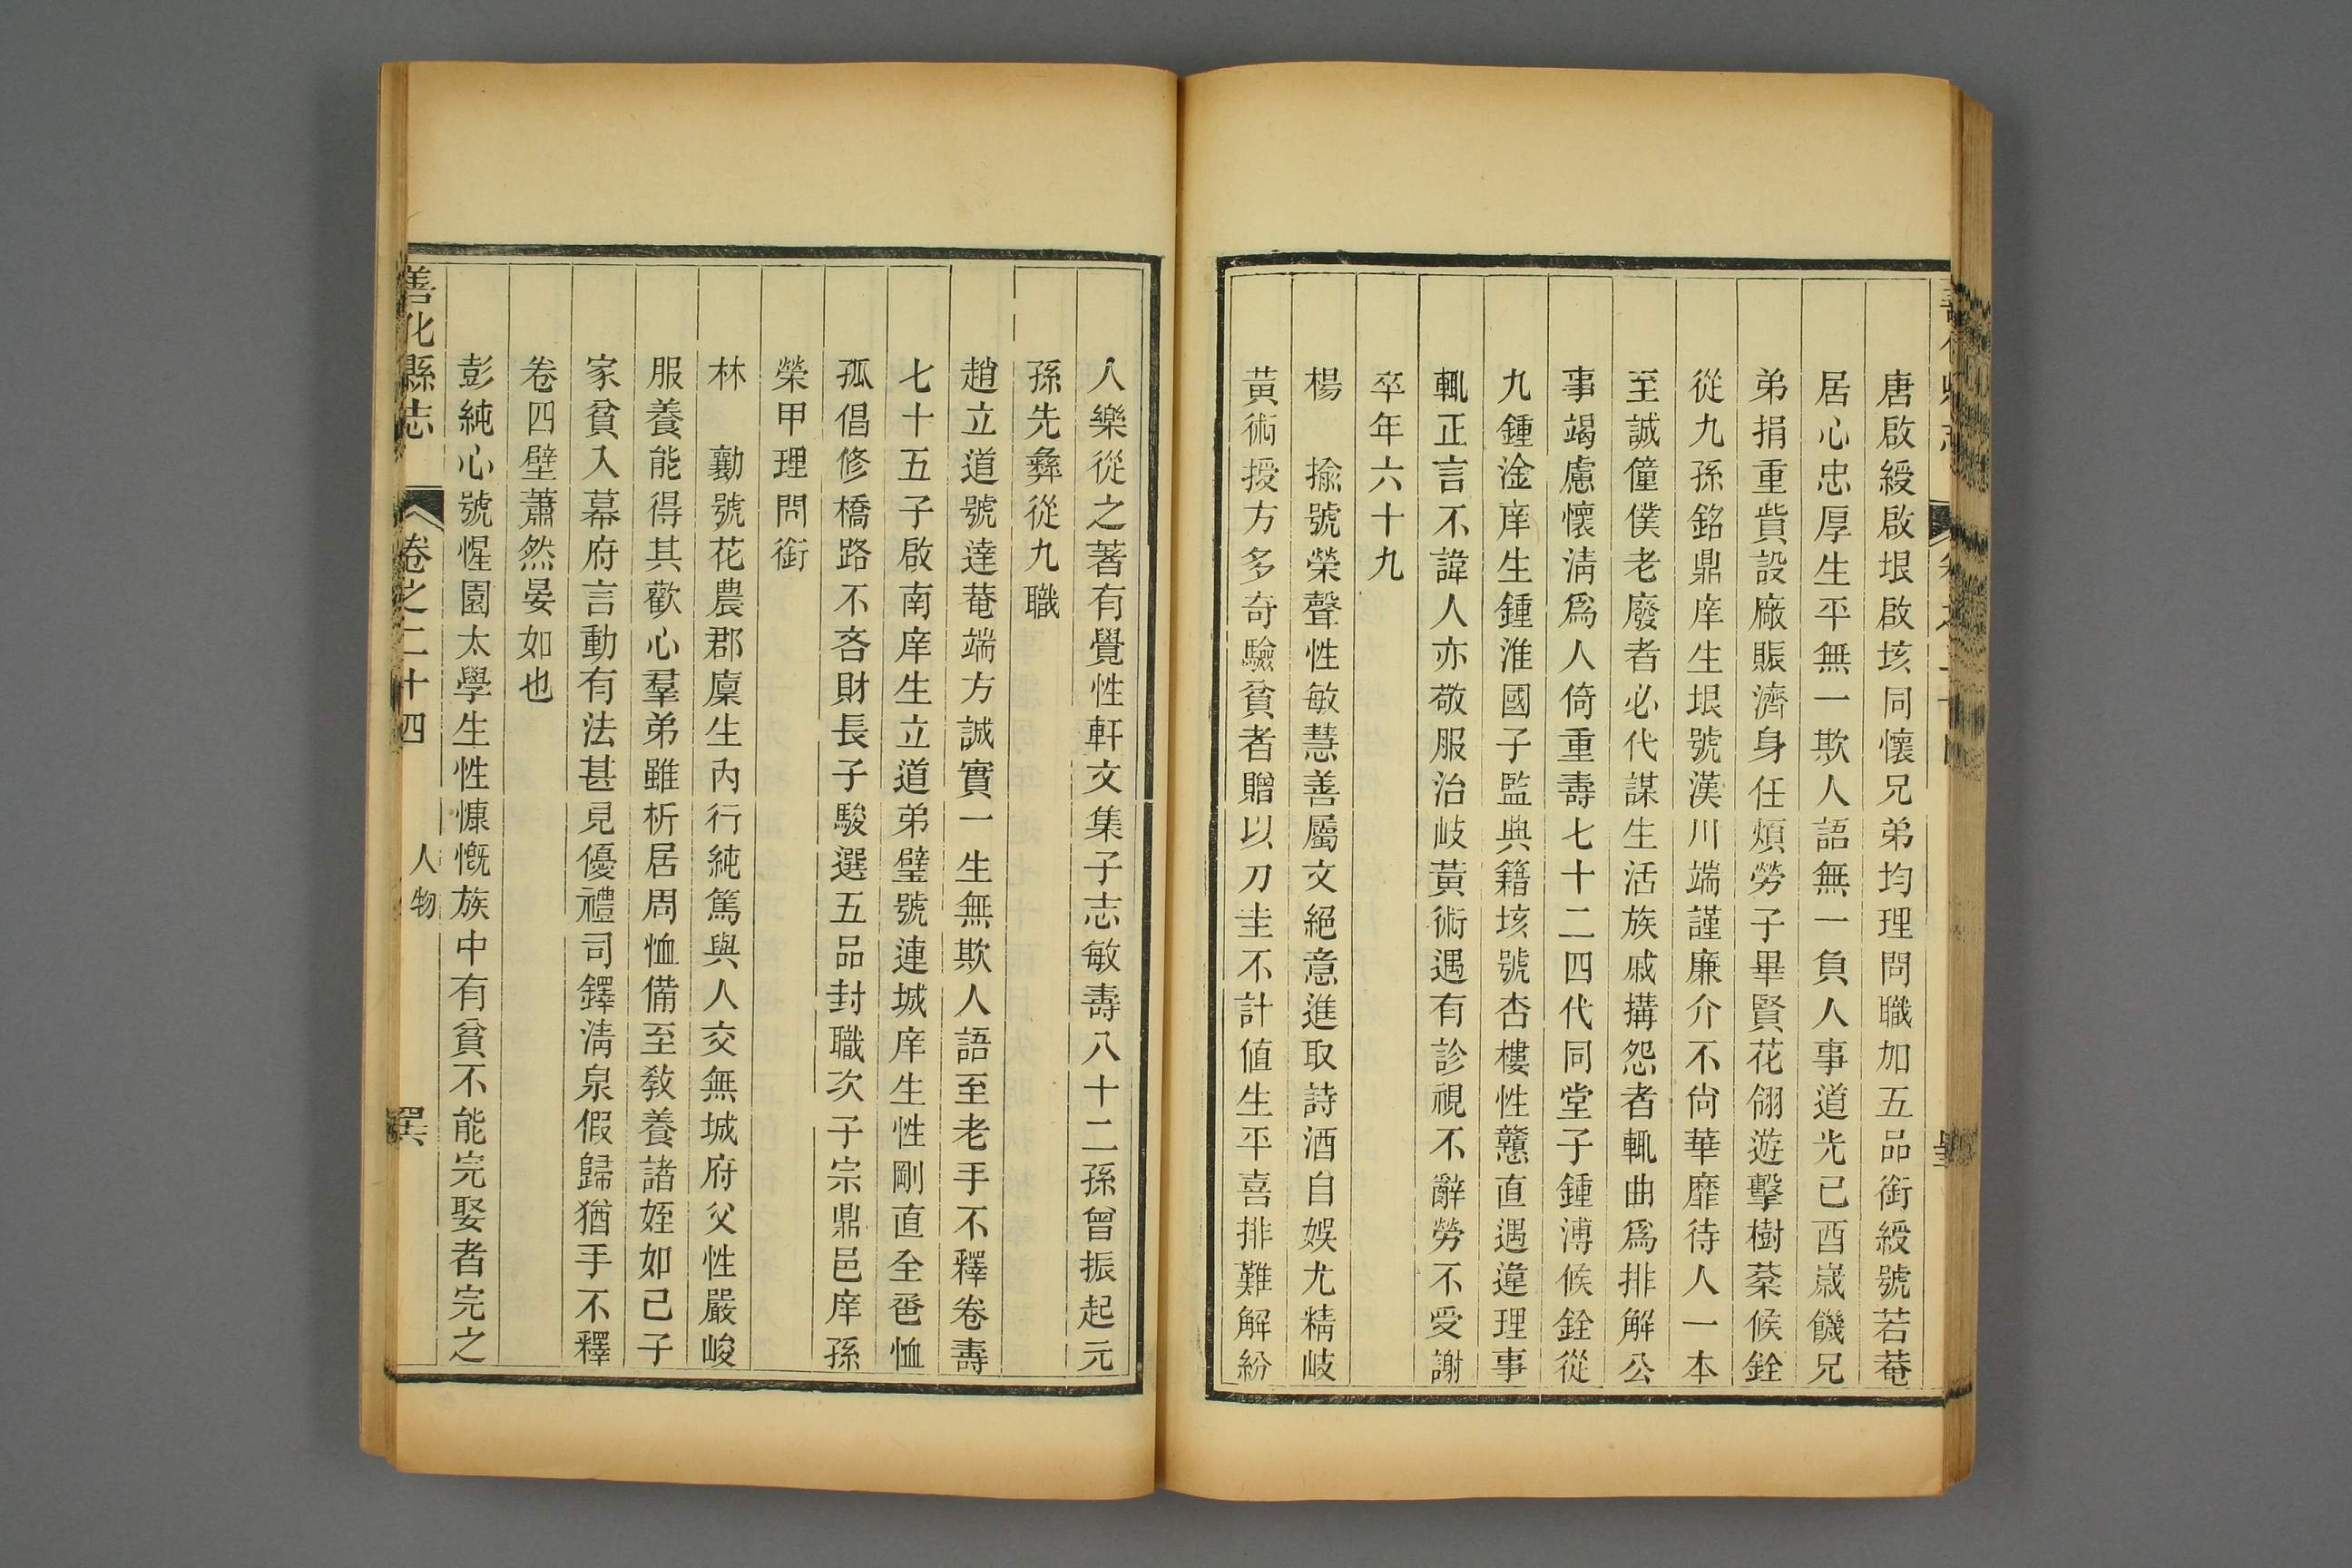 唐啟綬啟垠啟垓同懷兄弟均理問職加五品銜綬號若菴
居心忠厚生平無一欺人語無一負人事道光己酉嵗饑兄
弟捐重貲設廠賑濟身任煩勞子畢賢花翎遊擊樹棻候銓
從九孫銘鼎庠生垠號漢川端謹廉介不尙華靡待人一本
至誠僮僕老廢者必代謀生活族戚搆怨者輒曲爲排解公
事竭慮懷淸爲人倚重壽七十二四代同堂子鍾溥候銓從
九鍾淦庠生鍾淮國子監典籍垓號杏樓性戇直遇違理事
輒正言不諱人亦敬服治岐黃術遇有診視不辭勞不受謝
卒年六十九
楊　揄號榮聲性敏慧善屬文絕意進取詩酒自娛尤精岐
黃術授方多奇驗貧者贈以刀圭不計値生平喜排難解紛
人樂從之著有覺性軒文集子志敏壽八十二孫曾振起元
孫先彝從九職
趙立道號達菴端方誠實一生無欺人語至老手不釋卷壽
七十五子啟南庠生立道弟璧號連城庠生性剛直全舂恤
孤倡修橋路不吝財長子駿選五品封職次子宗鼎邑庠孫
榮甲理問銜
林　勷號花農郡廩生內行純篤與人交無城府父性嚴峻
服養能得其歡心羣弟雖析居周恤備至敎養諸姪如己子
家貧入幕府言動有法甚見優禮司鐸淸泉假歸猶手不釋
卷四壁蕭然晏如也
彭純心號惺園太學生性慷慨族中有貧不能完娶者完之
善化縣志　卷之二十四　人物